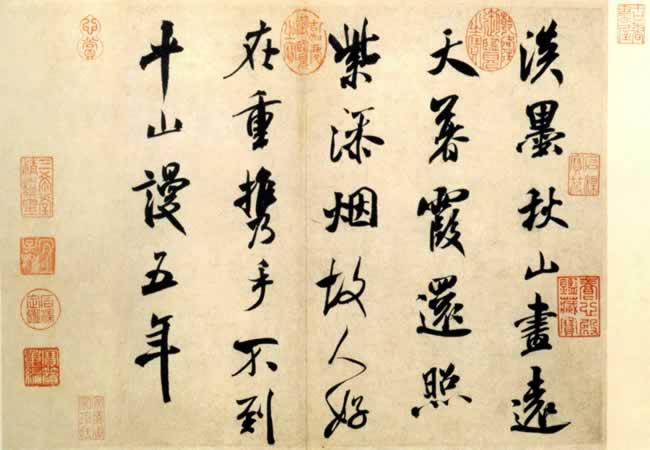 淡墨秋山畫遠
天暮霞還照
紫添烟故人好
在重攜手不到
平山漫五年